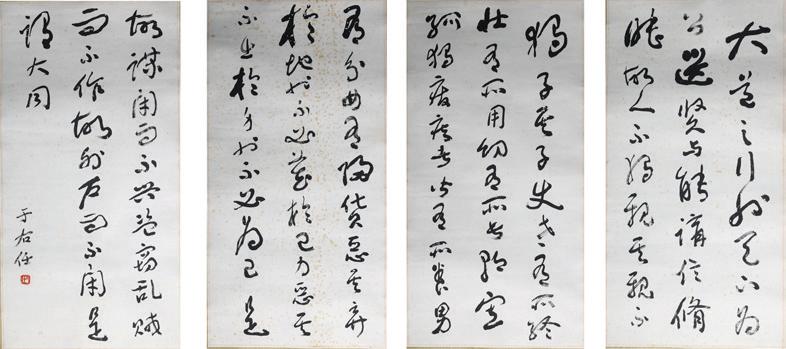 大道之行也天下為
公選賢与能講信脩
睦故人不獨親其親不
獨子其子使老有所終
壯有所用幼有所長矜寡
孤獨廢疾者皆有所養男
有分女有歸貨惡其棄
於地也不必藏於己力惡其
不出於身也不必為己是
故謀閉而不興盜竊亂賊
而不作故外戶而不閉是
謂大同
于右任